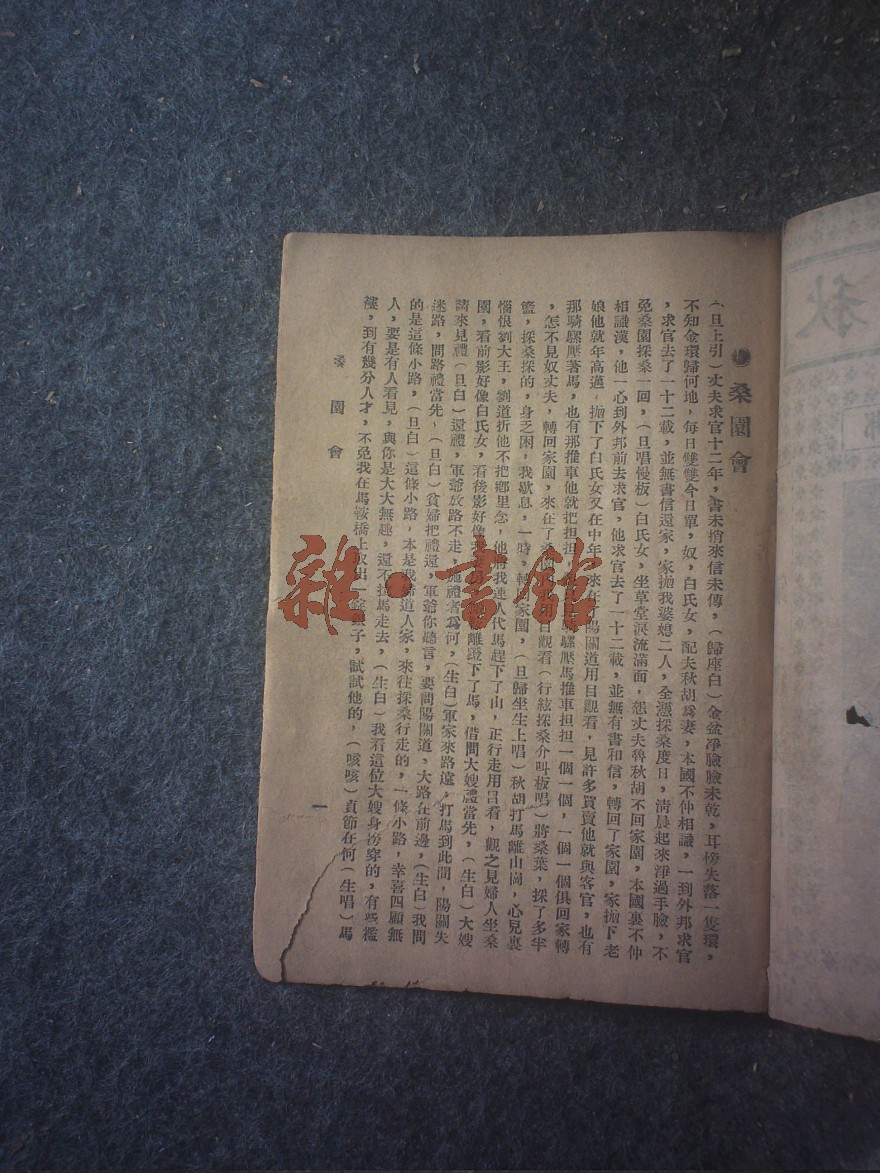 秋
桑園會
(旦上引)丈夫求官十二年，書未捎來信未傳，(歸座白)金盆淨臉臉未乾，耳傍失落一隻環，
不知金環歸何地，每日雙雙今日單，奴，白氏女，配夫秋胡爲妻，本國不仲相議，一到外邦求官
，求官去了一十二載，並無書信還家，家拋我婆媳二人，全憑採桑度日，清晨起來淨過手臉，不
免桑園採桑一回，(旦唱慢板)白氏女，坐草堂淚流滿面，怨丈夫魯秋胡不回家園，本國裏不仲
相議漢，他一心到外邦前去求官，他求官去了一十二載，並無有書和信，轉回了家園，家拋下老
娘他就年高邁，拋下了白氏女又在中年，來在了陽關道用目觀看，見許多買賣他就與客官，也有
那騎騾壓著馬，也有那推車他就把担担，騎騾壓馬推車担担一個一個，一個一個俱回家轉
，怎不見奴丈夫，轉回家園，來在了桑園用目觀看(行絃採桑介叫板唱)將桑葉，採了多半
籃，採桑採的，身乏困，我歇息，一時，轉家園，(旦歸坐生上唱)秋胡打馬離山崗，心見裏
惱恨劉大王，劉道折他不把鄉里念，他將我連人代馬趕下了山，正行走用目看，觀之見婦人坐桑
園，看前影好像白氏女，看後影好像離蹬下了馬，借問大嫂禮當先，(生白)大嫂
請來見禮(旦白)還禮，軍爺放路不走，施禮者爲何，(生白)軍家來路遠，打馬到此間，陽關失
迷路，問路禮當先，(旦白)貧婦把禮還，軍爺你聽言，要問陽關道，大路在前邊，(生白)我問
的是這條小路，(旦白)這條小路，本是我婦道人家，來往採桑行走的，一條小路，幸喜四顧無
人，要是有人看見，與你是大大無趣，還不拉馬走去，(生白)我看這位大嫂身穿的，有些襤
褸，到有幾分人才，不免我在馬鞍橋上取出一錠銀子，試試他的，(咳咳)貞節在何(生唱)馬
桑園會
一
雜·書館